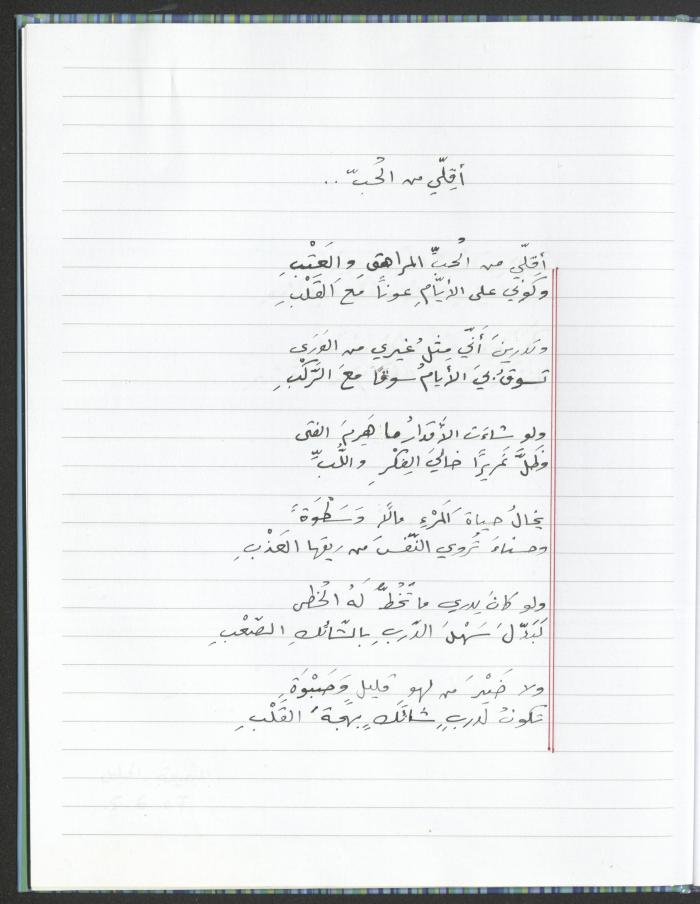 أقِلّي من الحُبّ ..
أقِلّي من الحُبِّ المراهقِ والعَتْبِ
وكوني على الأيّامِ عونًا مَعَ القَلْبِ
وتدرينَ أنّي مِثلُ غيري من الوَرَى
تسوقُ بيَ الأيامُ سوقًا معَ الرَّكْبِ
ولو شاءَت الأقدارُ ما هَرِمَ الفتى
وظلَّ غَريرًا خاليَ الفِكْرِ واللُّبِّ
يخالُ حياةَ المَرْءِ مالًا وَسَطْوَةً
وحسناءَ تُروي النّفْسَ من ريقها العَذْبِ
ولو كانَ يدري ما تَخُطُّ لَهُ الخُطى
لَبَدّلَ سَهْلَ الدّربِ بالشّائكِ الصّعْبِ
ولا ضَيْرَ من لهوٍ قليلٍ وَصَبْوَةٍ
تكونُ لدربٍ شائكٍ بهجةَ القَلْبِ